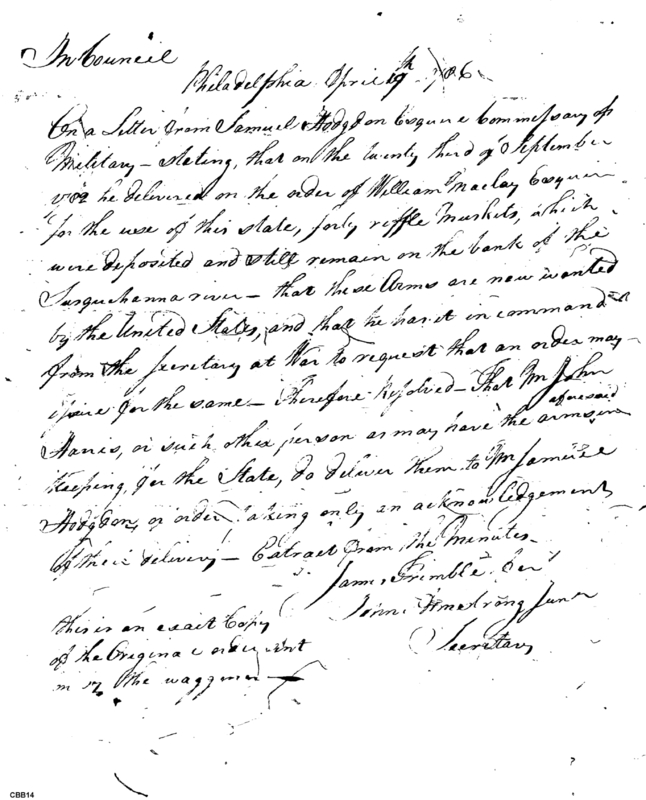 In Council
Philadelphia April 19th 1786
On a Letter from Samuel Hodgdon Esquire Commissary of
Military - Stating, that on the twenty third of September
1782 he delivered on the order of William Maclay Esquire
for the use of this state, forty riffle Muskets, which
were deposited and still remain on the bank of the
Susquehanna river - that these Arms are now wanted
by the United States, and that he has it in command
from the Secretary at War to request that an order may
issue for the same - Therefore Resolved - That Mr John
Harris, or such other person as may have the arms aforesaid in
keeping for the State, do deliver them to Mr Samuel
Hodgdon, or order taking only an acknowledgement
of their delivery - Extract from the Minutes
James Trimble for
John Armstrong Junr
Secretary
this is an exact Copy
of the Original order sent
the waggoner
CBB14